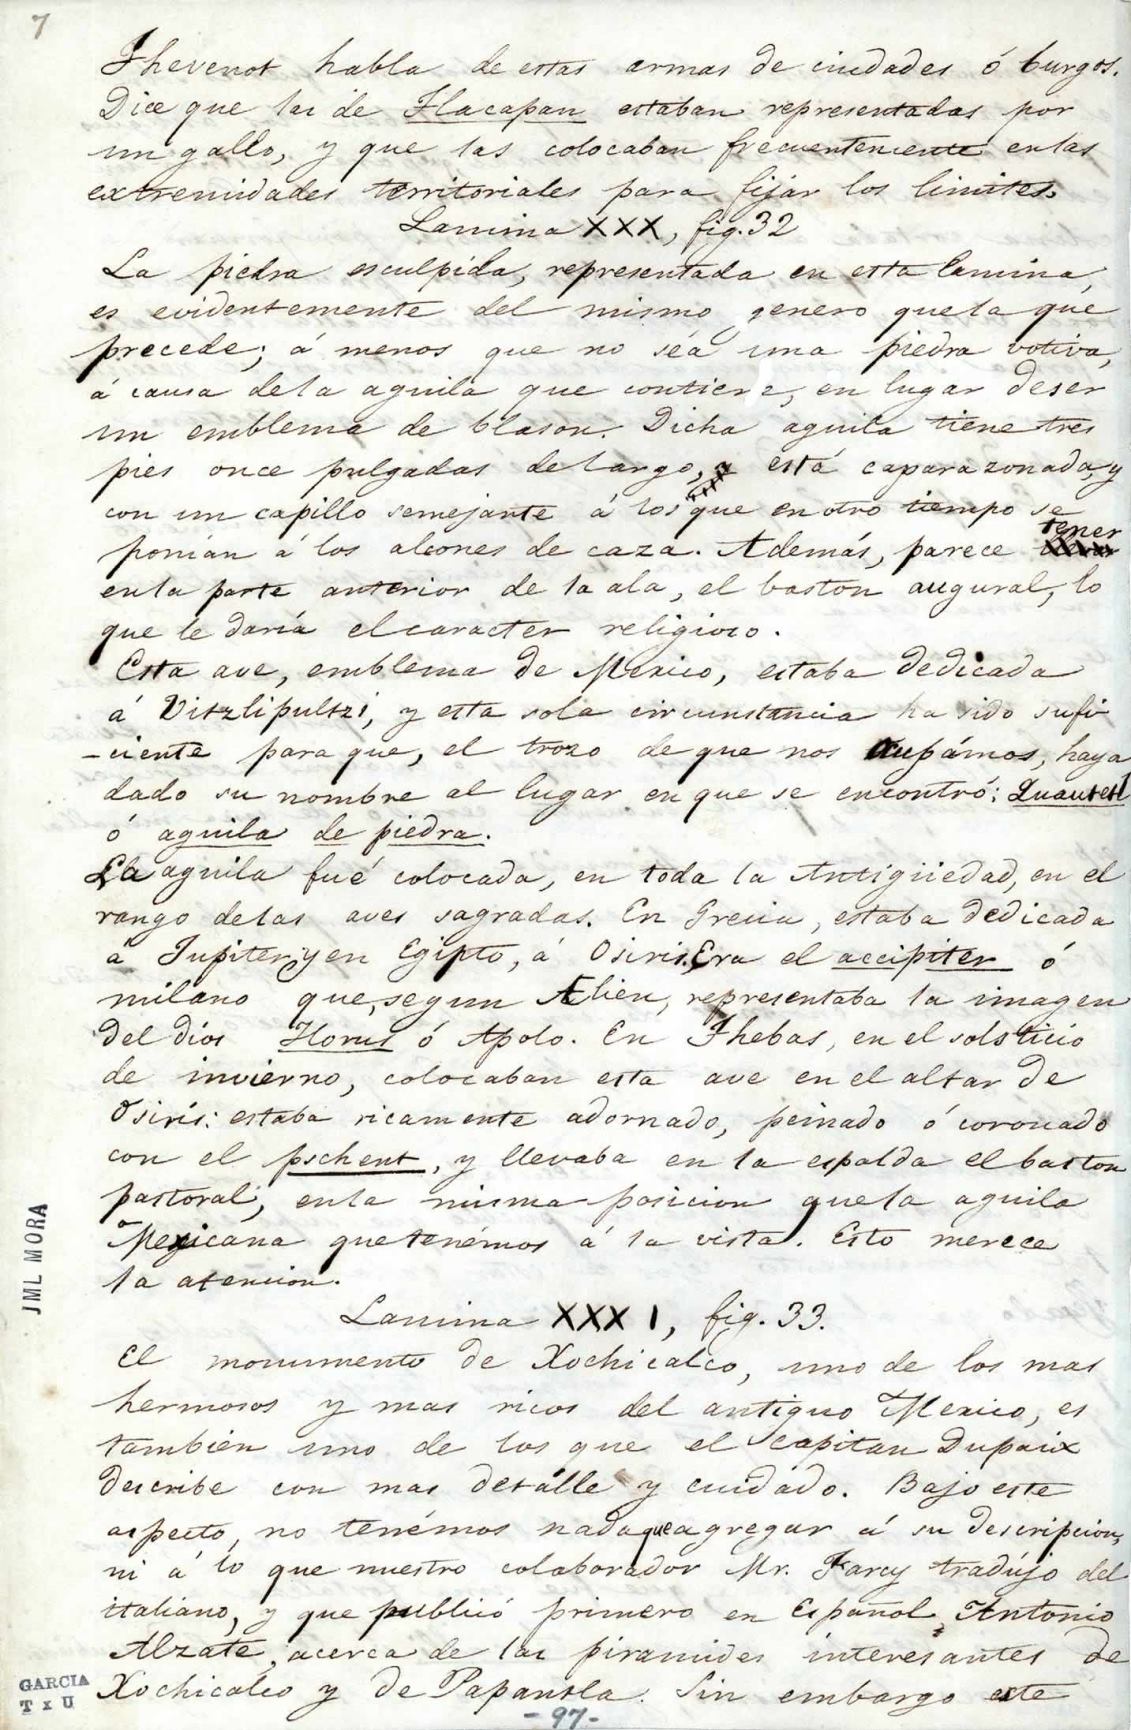 7
Thevenot habla de estas armas de ciudades ó burgos.
Dice que las de Tlacapan estaban representadas por
un gallo, y que las colocaban frecuentemente en las
extremidades territoriales para fijar los limites.
Lamina XXX, fig. 32
La piedra esculpida, representada en esta lamina,
es evidentemente del mismo genero que la que
precede; á menos que no séa una piedra votiva,
á causa de la aguila que contiene, en lugar de ser
un emblema de blason. Dicha aguila tiene tres
pies once pulgadas de largo, y está caparazonada, y
con un capillo semejante á los que en otro tiempo se
ponian á los alcones de caza. Además, parece tener
en la parte anterior de la ala, el baston augural, lo
que le daría el caracter religioso.
Esta ave, emblema de Mexico, estaba dedicada
á Vitzlipultzi, y esta sola circunstancia ha sido sufi-
-ciente para que, el trozo de que nos ocupámos, haya
dado su nombre al lugar en que se encontró: Quautetl
ó aguila de piedra.
La aguila fué colocada, en toda la Antigüedad, en el
rango de las aves sagradas. En Grecia, estaba dedicada
á Jupiter y en Egipto, á Osiris. Era el accipiter ó
milano que, segun Elien, representaba la imagen
del dios Horus ó Apolo. En Thebas, en el solsticio
de invierno, colocaban esta ave en el altar de
Osiris: estaba ricamente adornado, peinado ó coronado
con el pschent, y llevaba en la espalda el baston
pastoral, en la misma posicion que la aguila
Mexicana que tenémos á la vista. Esto merece
la atencion.
Lamina XXXI, fig. 33.
El monumento de Xochicalco, uno de los mas
hermosos y mas ricos del antiguo Mexico, es
tambien uno de los que el capitan Dupaix
describe con mas detalle y cuidado. Bajo este
aspecto, no tenémos nada que agregar á su descripcion,
ni á lo que nuestro colaborador Mr. Farcy tradujo del
italiano, y que publicó primero en Español, Antonio
Alzate, acerca de las piramides interesantes de
Xochicalco y de Papantla. Sin embargo este
-97-
JML MORA
GARCIA
T x U